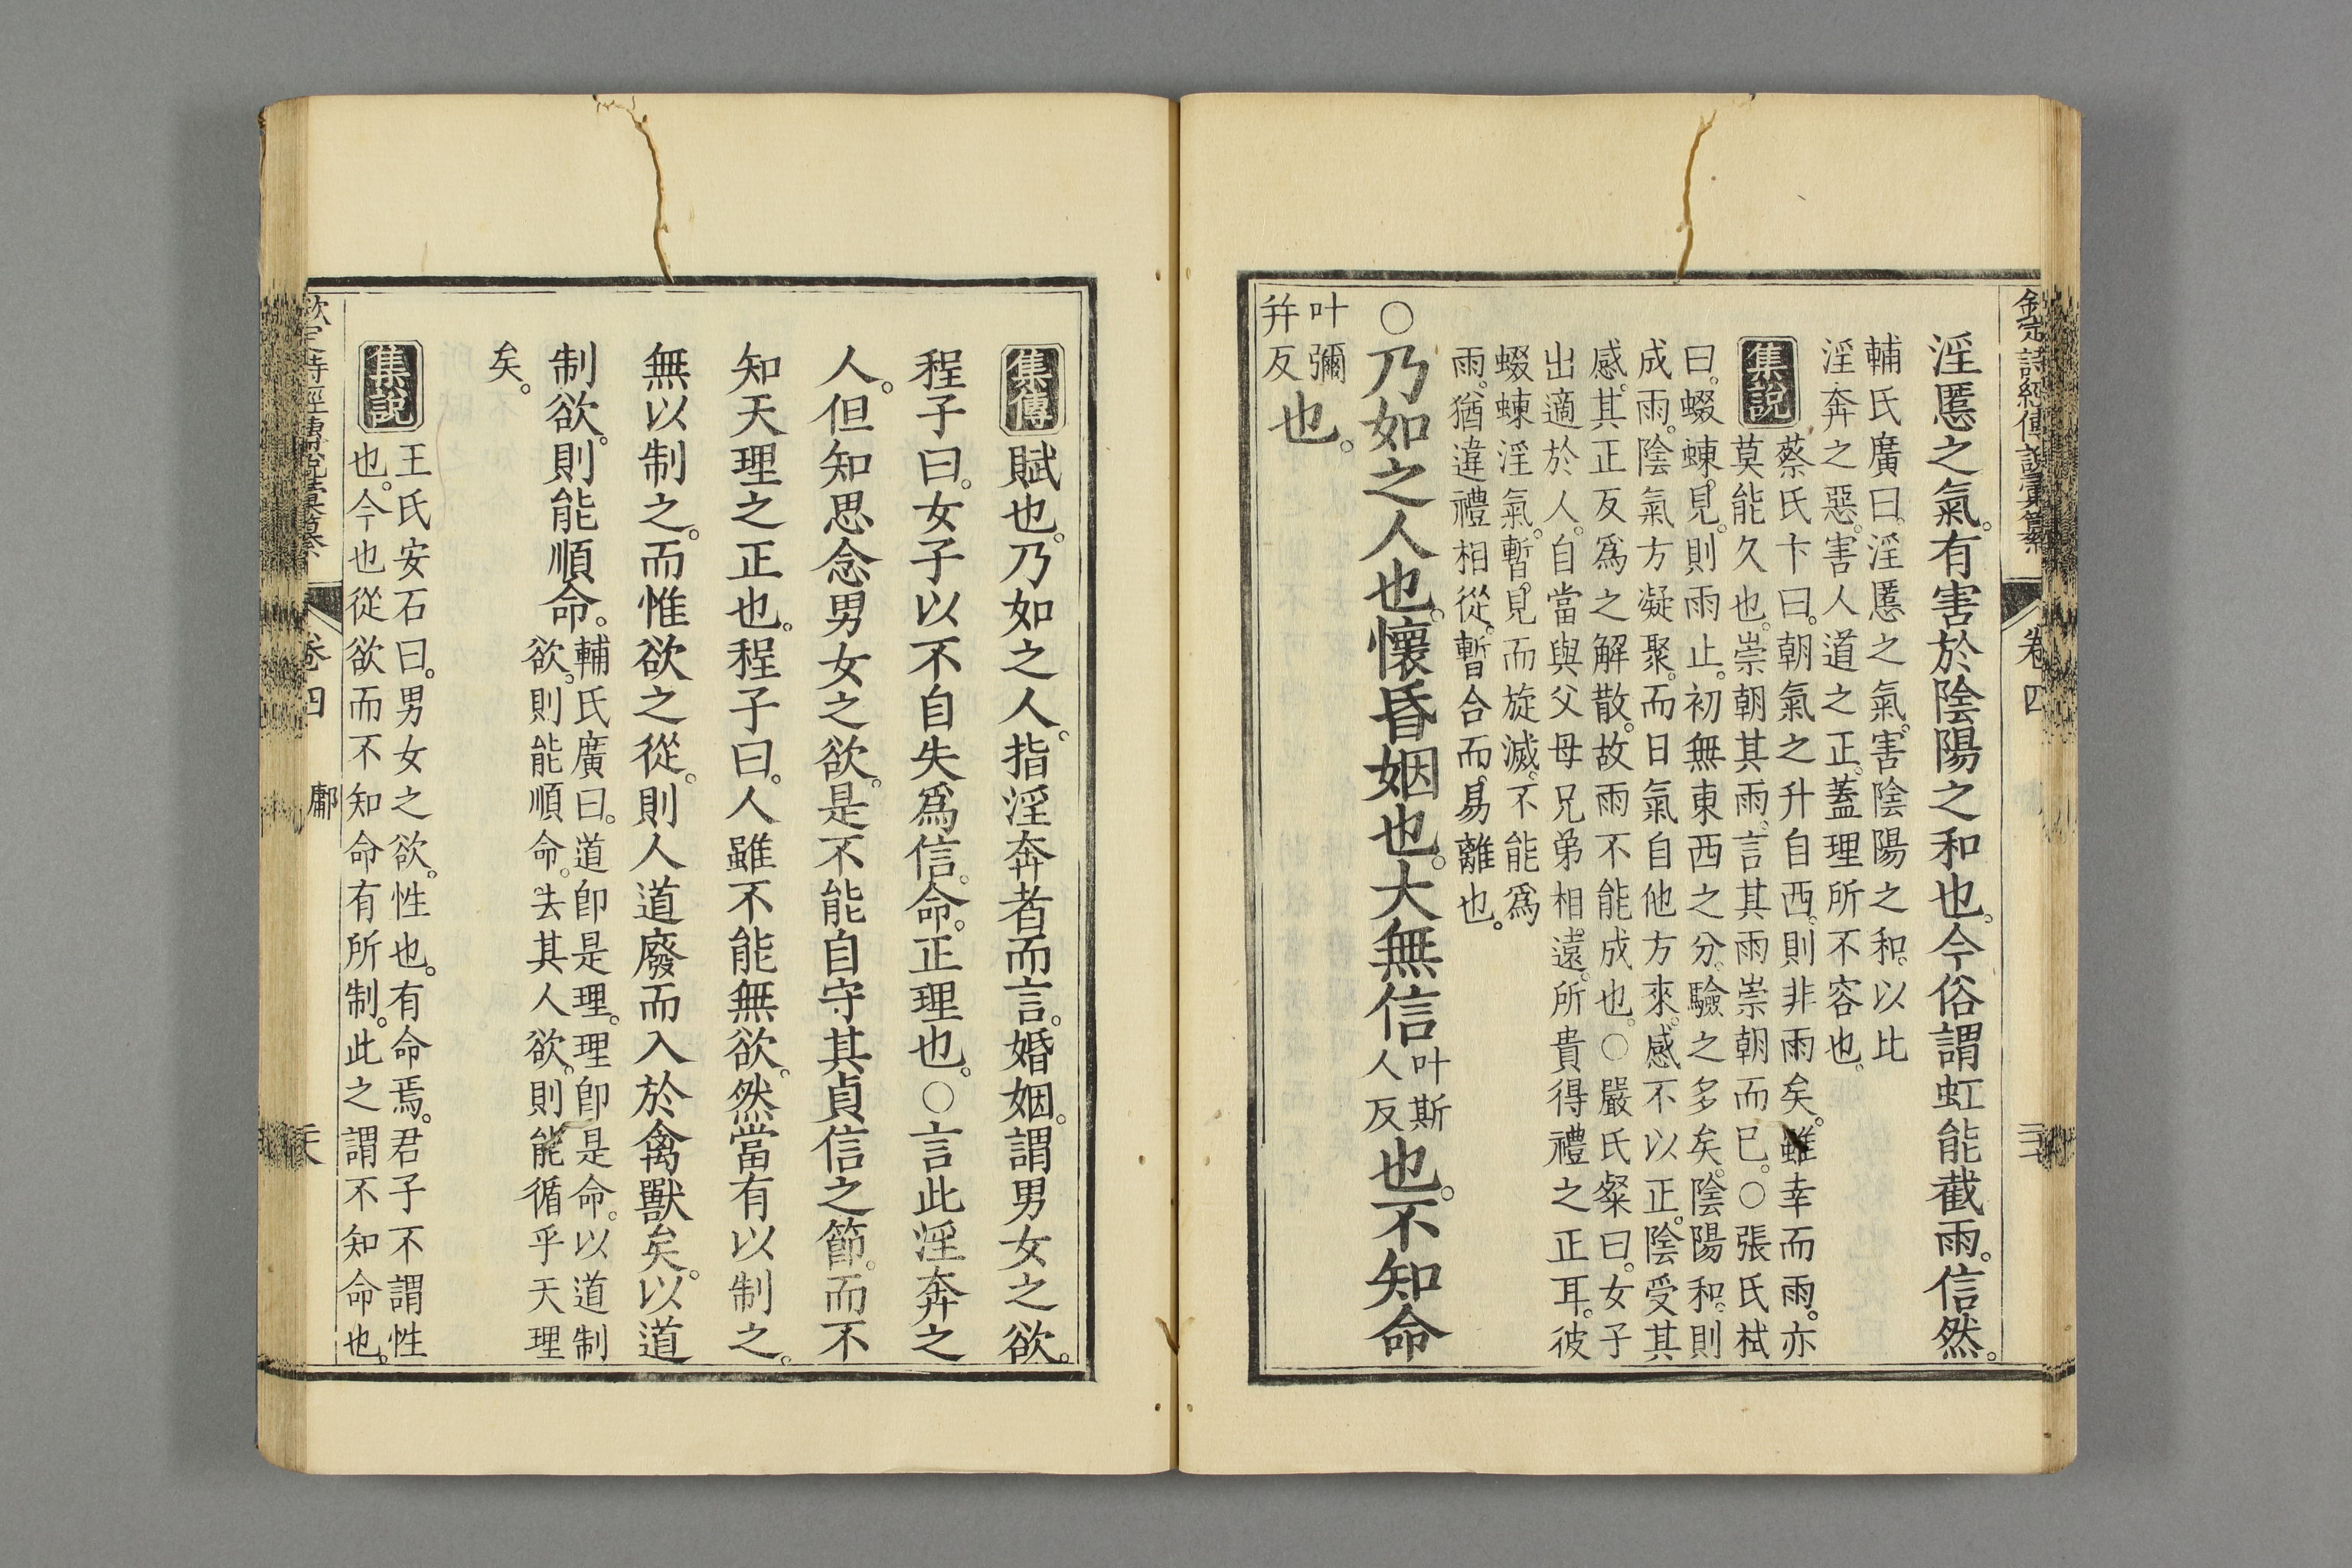 欽定詩經傳說彙纂 卷四
淫慝之氣。有害於陰陽之和也。今俗謂虹能截雨。信然。
輔氏廣曰。淫慝之氣。害陰陽之和。以比
淫奔之惡。害人道之正。蓋理所不容也。
集說
蔡氏卞曰。朝氣之升自西。則非雨矣。雖幸而雨。亦
莫能久也。崇朝其雨。言其雨崇朝而已。○張氏栻
曰。蝃蝀見。則雨止。初無東西之分。驗之多矣。陰陽和。則
成雨。陰氣方凝聚。而日氣自他方來。感不以正。陰受其
感。其正反爲之解散。故雨不能成也。○嚴氏粲曰。女子
出適於人。自當與父母兄弟相遠。所貴得禮之正耳。彼
蝃蝀淫氣。暫見而旋滅。不能爲
雨。猶違禮相從。暫合而易離也。
○乃如之人也。懷昏姻也。大無信叶斯人反也。不知命
叶彌
幷反也。
集傳 賦也。乃如之人。指淫奔者而言。婚姻。謂男女之欲。
程子曰。女子以不自失爲信。命。正理也。○言此淫奔之
人。但知思念男女之欲。是不能自守其貞信之節。而不
知天理之正也。程子曰。人雖不能無欲。然當有以制之。
無以制之。而惟欲之從。則人道廢而入於禽獸矣。以道
制欲。則能順命。
輔氏廣曰。道卽是理。理卽是命。以道制
欲。則能順命。去其人欲。則能循乎天理
矣。
集說
王氏安石曰。男女之欲。性也。有命焉。君子不謂性
也。今也從欲而不知命有所制。此之謂不知命也。
欽定詩經傳說彙纂 卷四 鄘